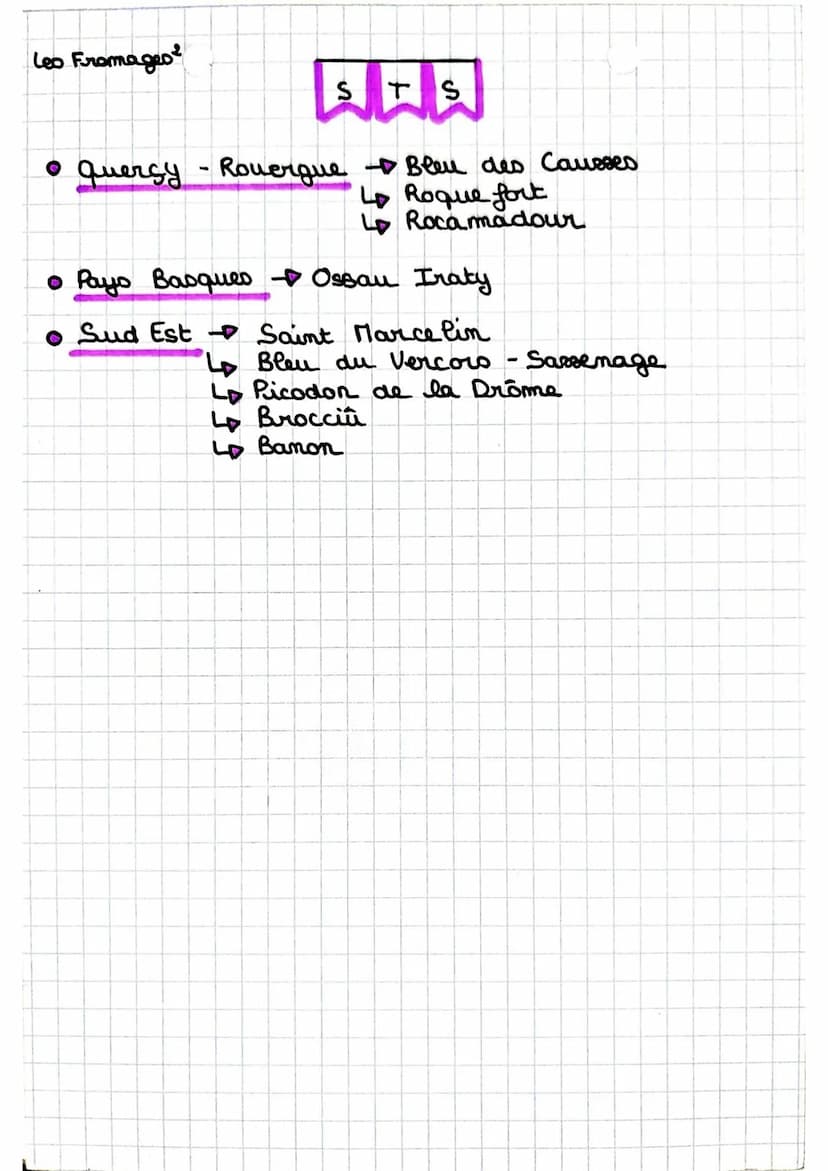 Les Fromages²
S T S
Quercy - Rouergue → Bleu des Causses
↳ Roquefort
↳ Rocamadour
Pays Basques → Ossau Iraty
Sud Est → Saint Marcelin
↳ Bleu du Vercors - Sassenage
↳ Picodon de la Drôme
↳ Brocciû
↳ Banon